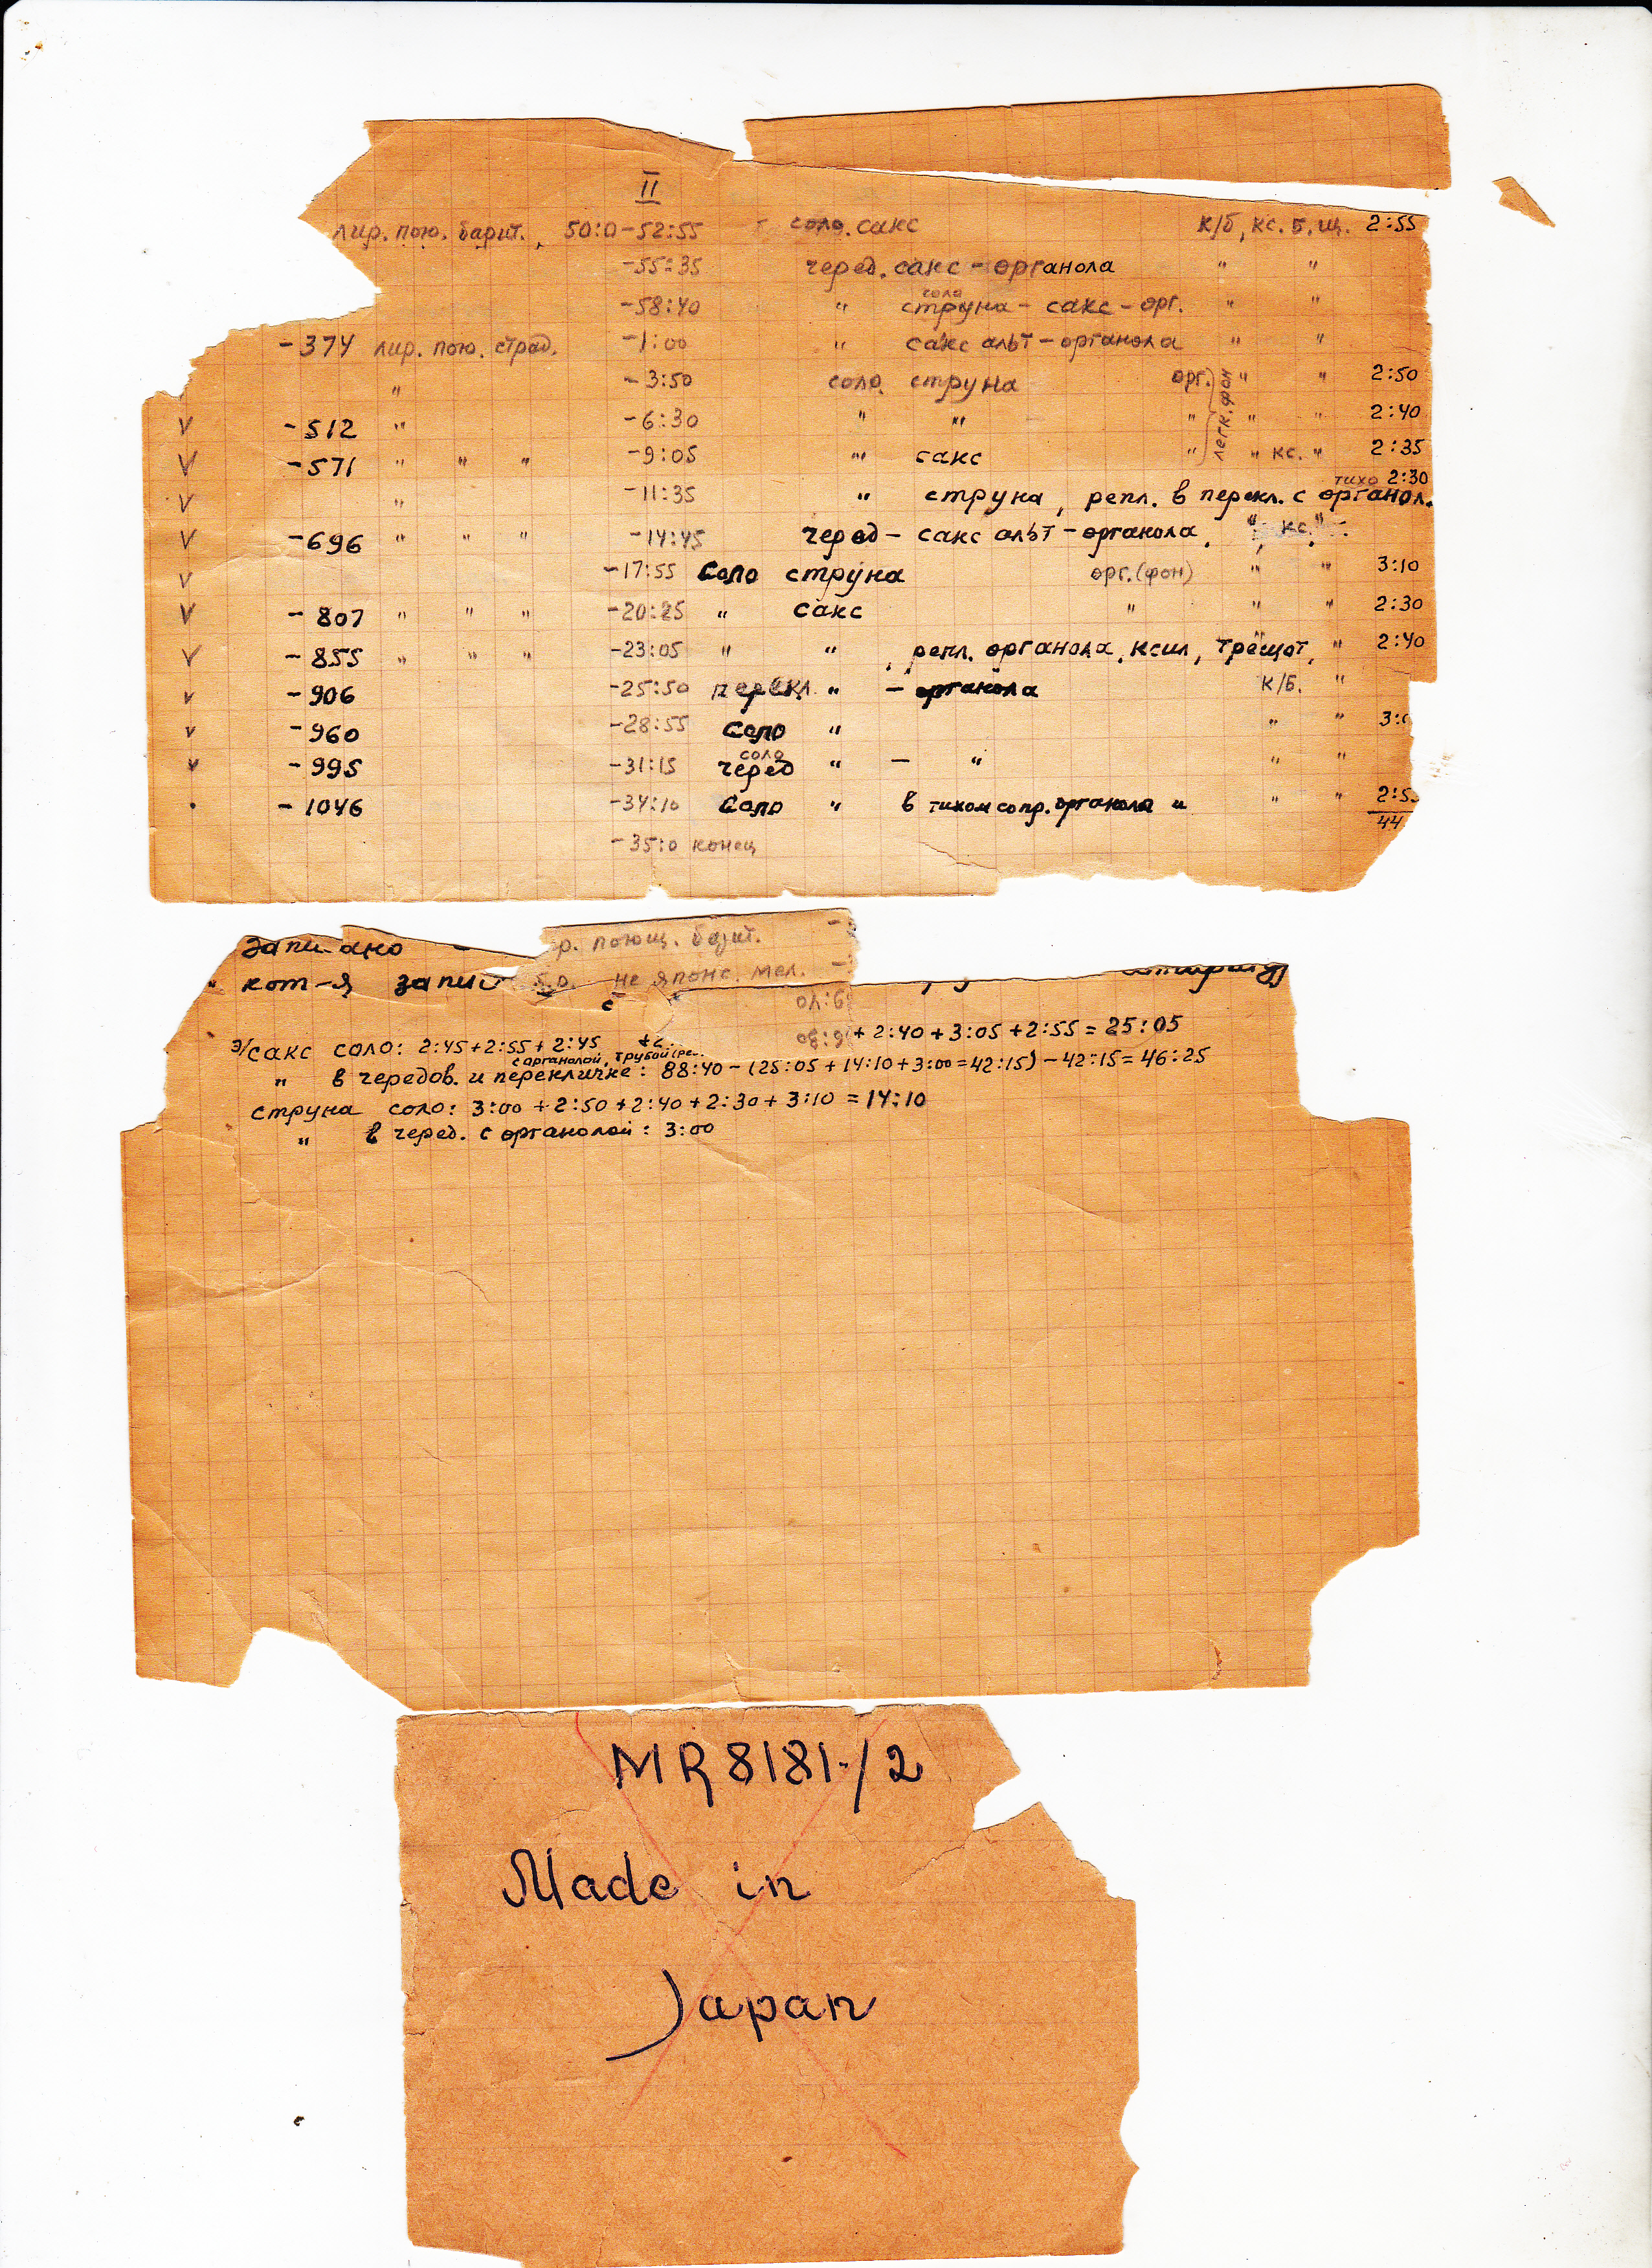 II
лир. пою. барит., 50:0-52:55 соло. сакс к/б, кс. б. щ. 2:55
-55:35 черед. сакс - органола " "
-58:40 " соло струна - сакс - орг. " "
-374 лир. пою. страд. -1:00 " сакс альт - органола " "
" -3:50 соло струна орг. " " 2:50
легк. фон
V -512 " -6:30 " " " " " 2:40
V -571 " " " -9:05 " сакс " " кс. " 2:35
V " -11:35 " струна, репл. в перекл. с органол. тихо 2:30
V -696 " " " -14:45 черед - сакс альт - органола, " кс. "
V -17:55 соло струна орг. (фон) " " 3:10
V -807 " " " -20:25 " сакс " " " 2:30
V -855 " " " -23:05 " " , репл. органола, ксил, трещот, " 2:40
V -906 -25:50 перекл. " - органола к/б. "
V -960 -28:55 соло " " " 3:0
V -995 -31:15 соло черед " - " " "
. -1046 -34:10 соло " в тихом сопр. органола " " " 2:5
44
-35:0 конец
записано р. поющ. барит. -
кот-я запис не японс. мел. -
9:40
6:30
э/сакс соло: 2:45+2:55+2:45 +2. + 2:40 + 3:05 + 2:55 = 25:05
с органолой, трубой (ре..
" в чередов. и перекличке: 88:40 - (25:05 + 14:10 + 3:00 = 42:15) - 42:15 = 46:25
струна соло: 3:00 + 2:50 + 2:40 + 2:30 + 3:10 = 14:10
" в черед. с органолой: 3:00
MR8181-/2
Made in
Japan